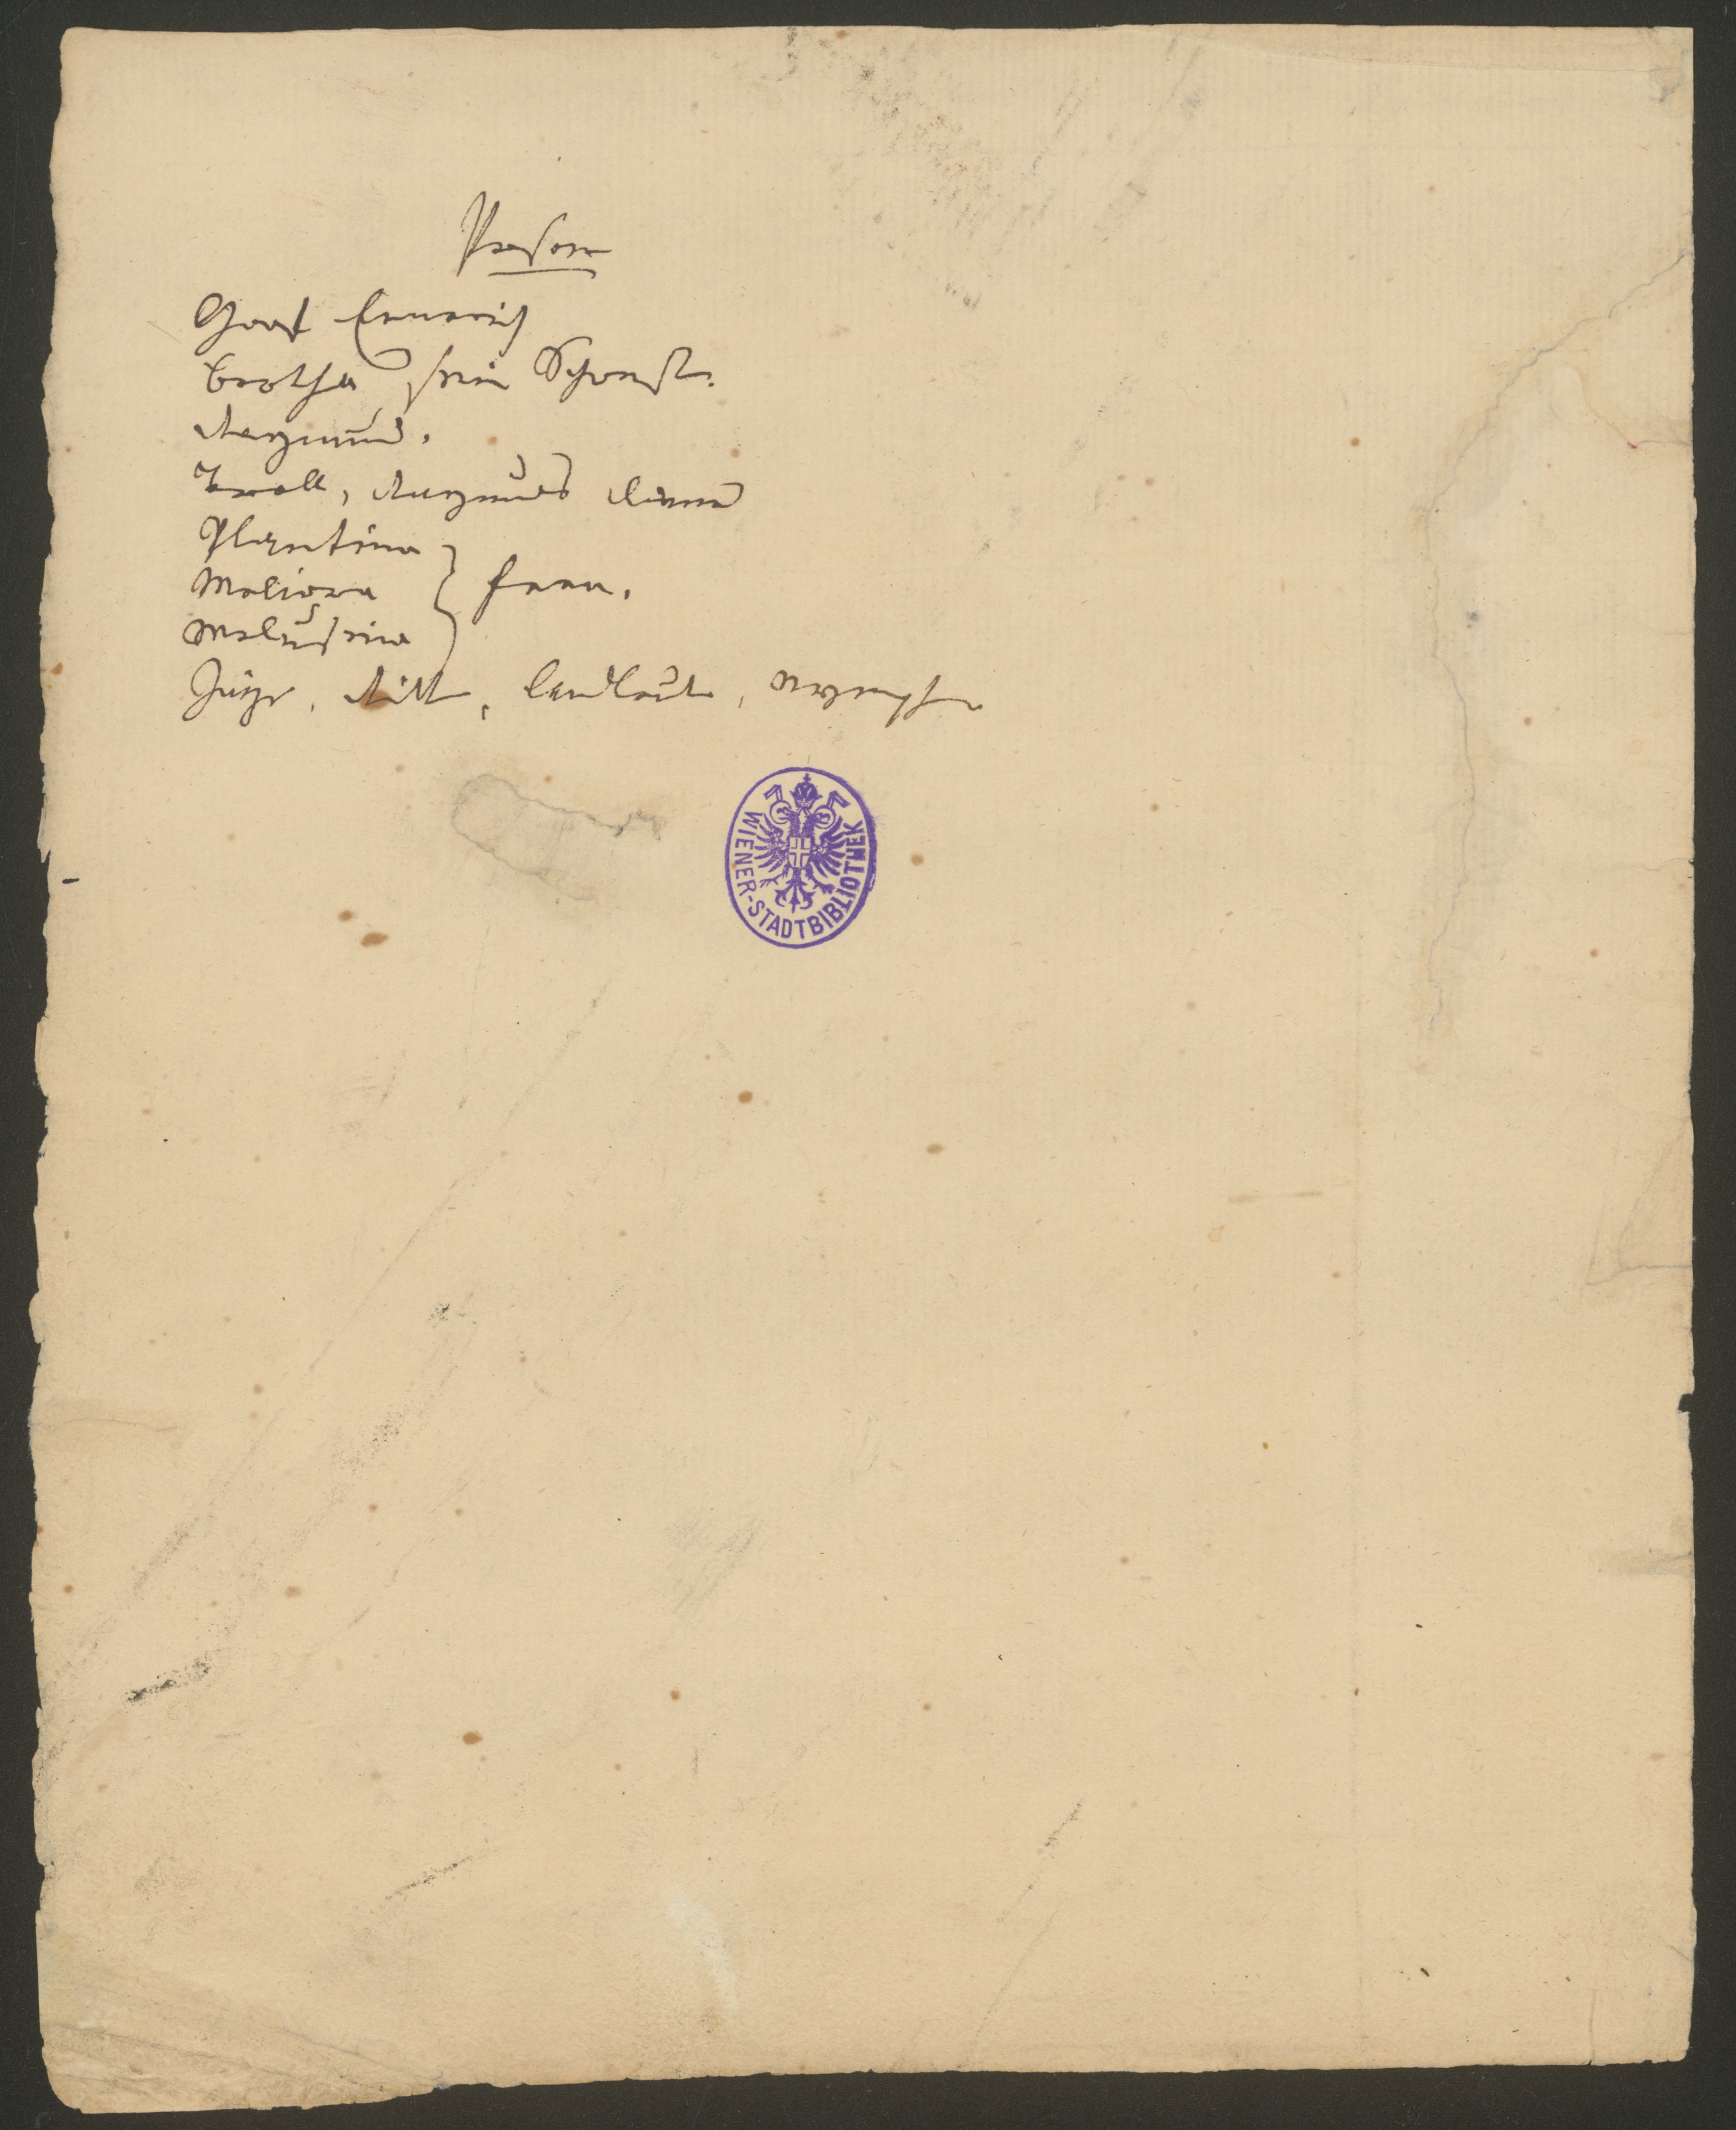 Personen
Graf Emerich
Bertha seine Schwester.
Raymund.
Troll, Raymunds Diener
Plantina
Meliora } Feen.
Melusina
Jäger, Ritter, Landleute, Nymphen
WIENER-STADTBIBLIOTHEK